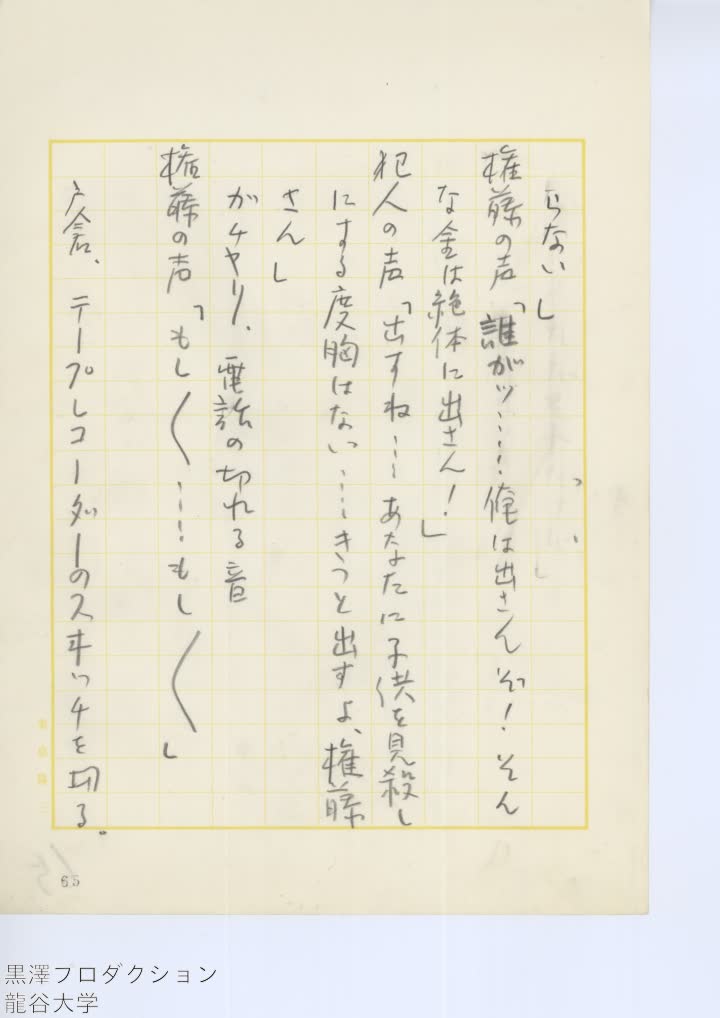 らない」
権藤の声「誰がッ……俺は出さんぞ！そん
な金は絶体に出さん！」
犯人の声「出すね……あなたに子供を見殺し
にする度胸はない……きっと出すよ、権藤
さん」
ガチャリ、電話の切れる音
権藤の声「もし〱……もし〱」
戸倉、テープレコーダーのスヰッチを切る。
65
黒澤プロダクション
龍谷大学